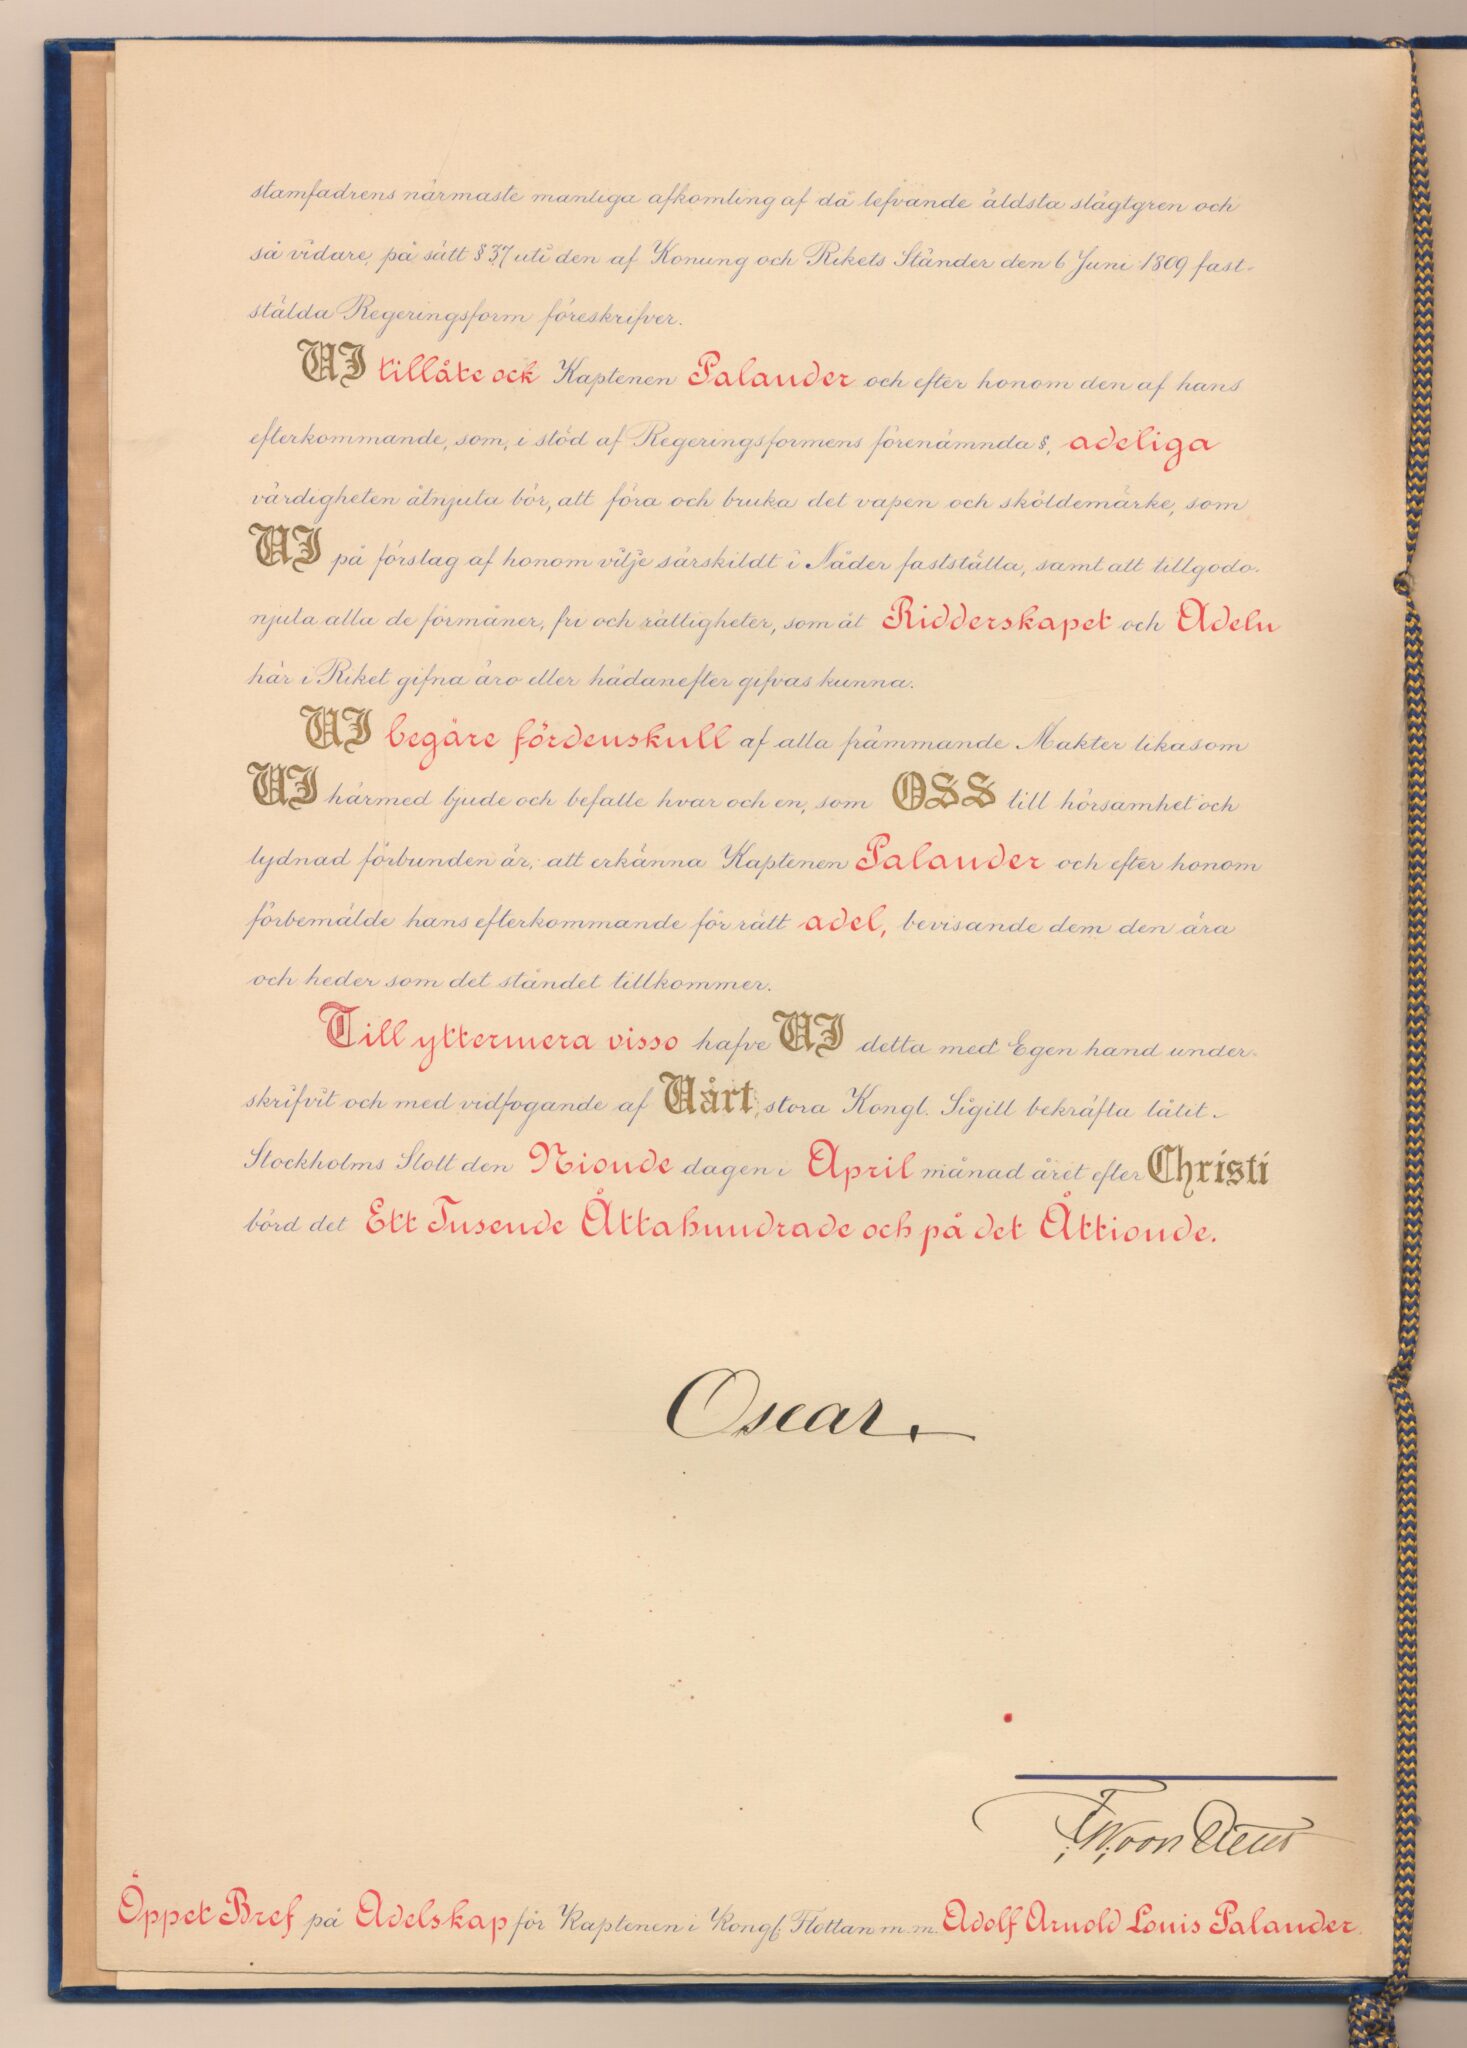 stamfadrens närmaste manliga afkomling af då lefvande äldsta slägtgren och
så vidare, på sätt § 37 uti den af Konung och Rikets Ständer den 6 Juni 1809 fast-
stälda Regeringsform föreskrifver.
VI tillåte ock Kaptenen Palander och efter honom den af hans
efterkommande, som, i stöd af Regeringsformens förenämnda §, adeliga
värdigheten åtnjuta bör, att föra och bruka det vapen och sköldemärke, som
VI på förslag af honom vilje särskildt i Nåder fastställa, samt att tillgodo-
njuta alla de förmåner, fri och rättigheter, som åt Ridderskapet och Adeln
här i Riket gifna äro eller hädanefter gifvas kunna.
VI begäre fördenskull af alla främmande Makter likasom
VI härmed bjude och befalle hvar och en, som OSS till hörsamhet och
lydnad förbunden är, att erkänna Kaptenen Palander och efter honom
förbemälde hans efterkommande för rätt adel, bevisande dem den ära
och heder som det ståndet tillkommer.
Till yttermera visso hafve VI detta med Egen hand under-
skrifvit och med vidfogande af Vårt stora Kongl. Sigill bekräfta låtit.
Stockholms Slott den Nionde dagen i April månad året efter Christi
börd det Ett Tusende Åttahundrade och på det Åttionde.
Oscar.
Öppet Bref på Adelskap för Kaptenen i Kongl. Flottan m. m. Adolf Arnold Louis Palander.